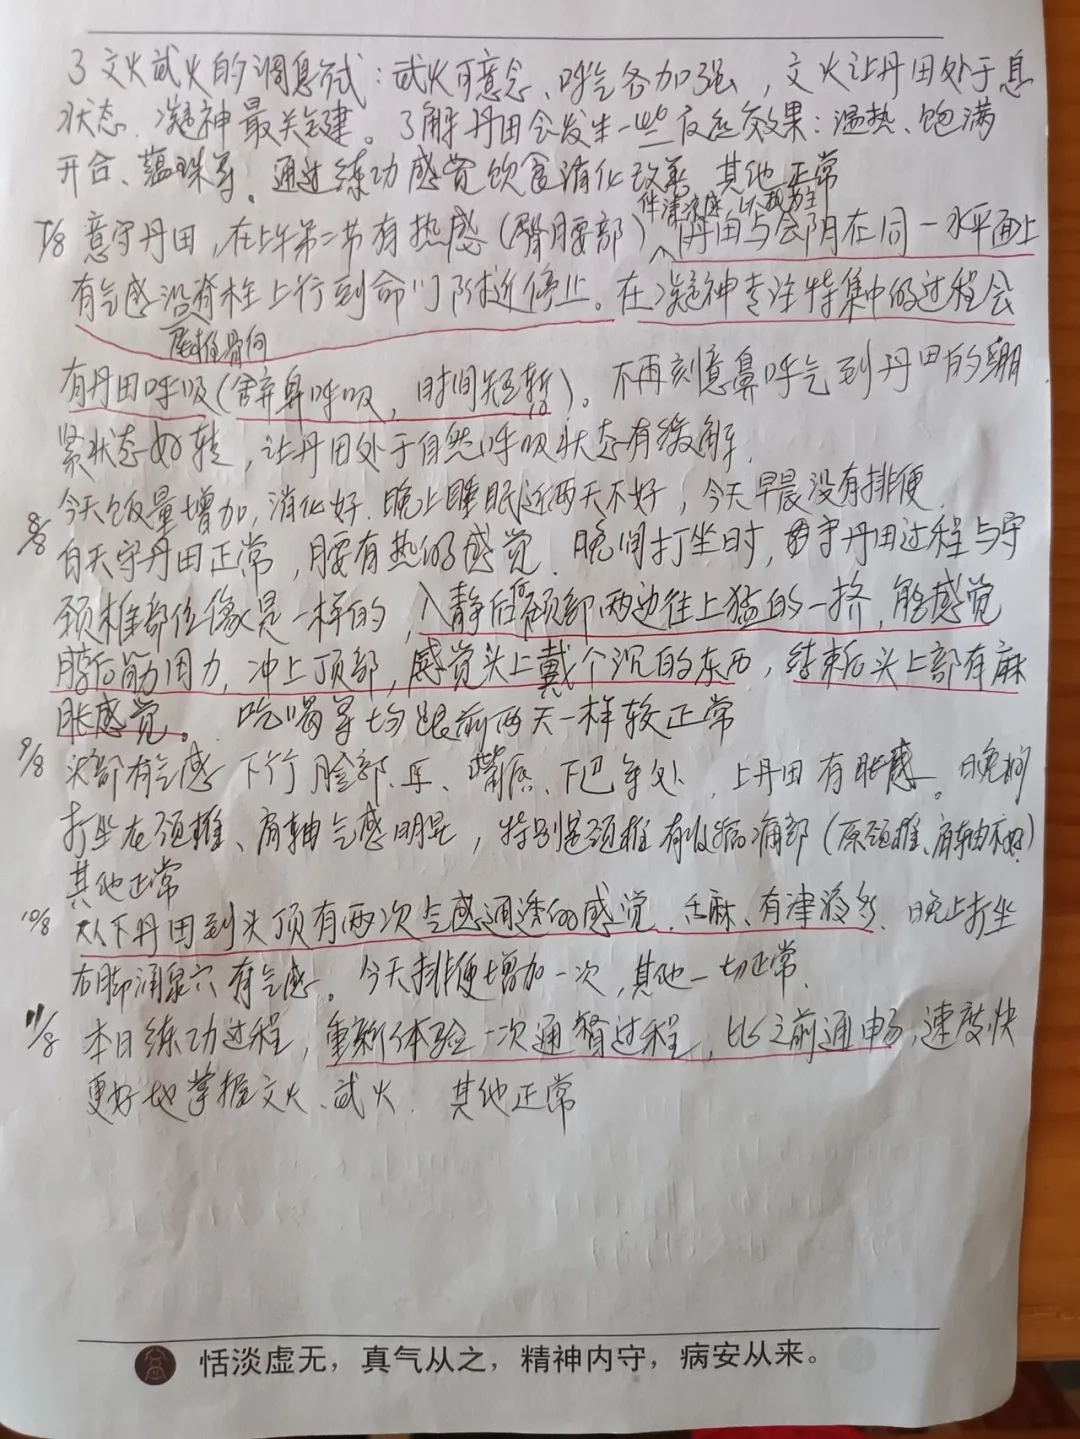 3 文火武火的调息式：武火可意念、呼气各加强，文火让丹田处于息
状态，凝神最关键。了解丹田会发生一些反应效果：温热、饱满
开合、蕴珠等。通过练功感觉饮食消化改善，其他正常
7/8 意守丹田，在上午第一节有热感（臀腰部） 丹田与会阴在同一水平面上
有气感沿脊柱上行到命门附近停止。在凝神专注特集中的过程会
尾椎骨向
有丹田呼吸（舍弃鼻呼吸，时间短暂）。不再刻意鼻呼气到丹田的绷
紧状态好转，让丹田处于自然呼吸状态有缓解，
今天饭量增加，消化好．晚上睡眠近两天不好，今天早晨没有排便
8/8 白天守丹田正常，腰有热的感觉．晚间打坐时，守丹田过程与守
颈椎部位像是一样的，入静后颈部两边往上猛的一挤，能感觉
脖后筋用力，冲上顶部，感觉头上戴个沉的东西，结束后头上部有麻
胀感觉。吃喝等均跟前两天一样较正常
9/8 头部有气感下行脸部、耳、嘴唇、下巴等处，上丹田有胀感。晚间
打坐在颈椎、肩轴气感明显，特别是颈椎有 病痛部（原颈椎、肩轴不好）
其他正常
10/8 从下丹田到头顶有两次气感通透的感觉．舌麻、有津液多．晚上打坐
右脚涌泉穴有气感。今天排便增加一次，其他一切正常．
11/8 本日练功过程，重新体验一次通督过程，比之前通畅，速度快
更好地掌握文火、武火．其他正常
恬淡虚无，真气从之，精神内守，病安从来。